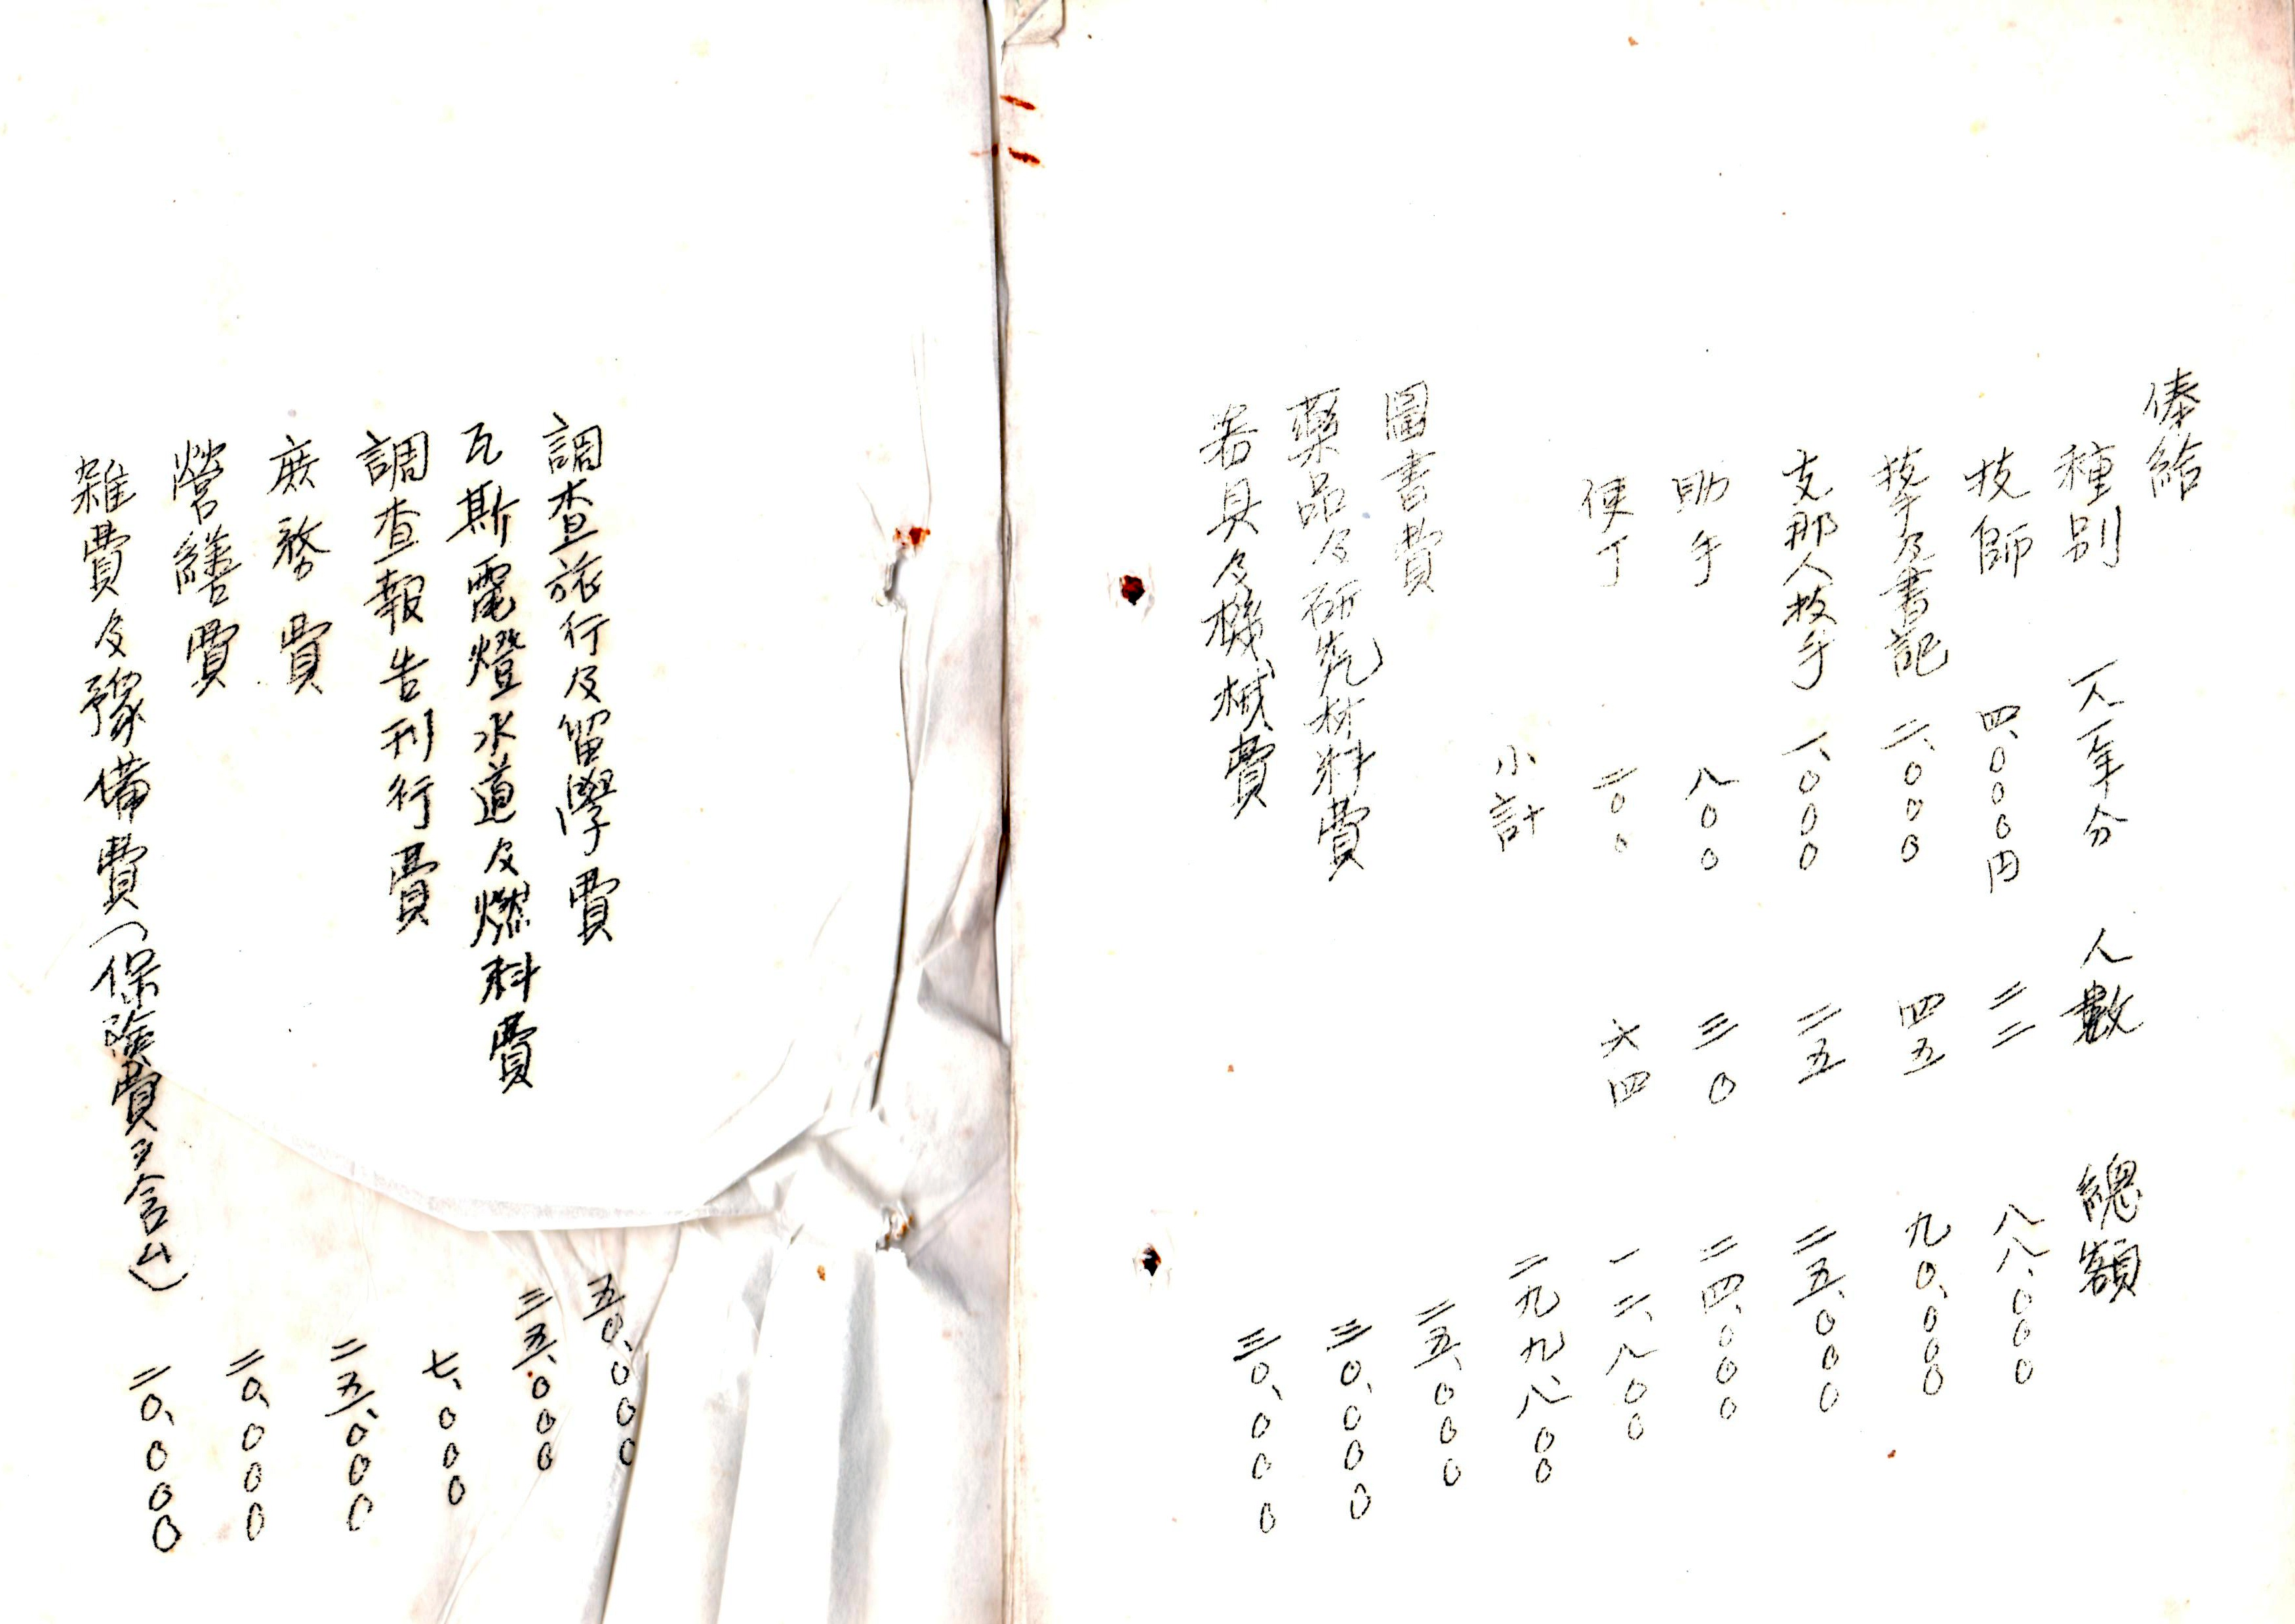 俸給
種別　一人一年分　人數　總額
技師　四、〇〇〇円　二二　八八、〇〇〇
技手及書記　二、〇〇〇　四五　九〇、〇〇〇
支那人技手　一、〇〇〇　二五　二五、〇〇〇
助手　八〇〇　三〇　二四、〇〇〇
使丁　二〇〇　六四　一二、八〇〇
小計　二九九、八〇〇
圖書費　二五、〇〇〇
藥品及研究材料費　三〇、〇〇〇
器具及機械費　三〇、〇〇〇
調查旅行及留學費　五〇、〇〇〇
瓦斯電燈水道及燃料費　三五、〇〇〇
調查報告刊行費　七、〇〇〇
庶務費　二五、〇〇〇
營繕費　二〇、〇〇〇
雜費及豫備費（保險費ヲ含ム）　二〇、〇〇〇